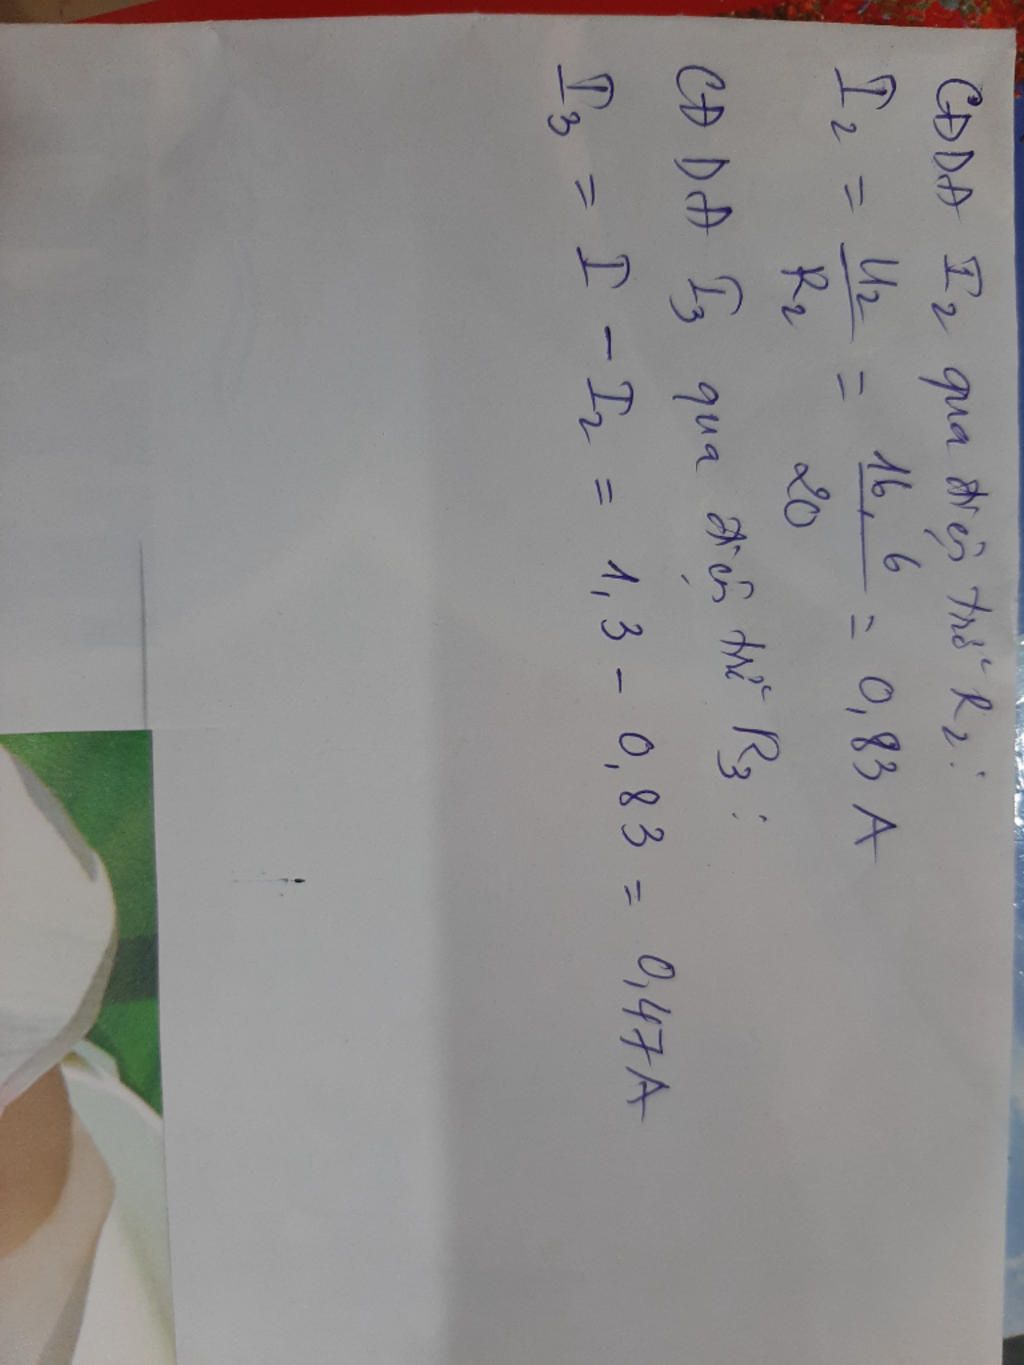 CĐDĐ I₂ qua điện trở R₂:
I₂ = U₂/R₂ = 16,6/20 = 0,83 A
CĐDĐ I₃ qua điện trở R₃:
I₃ = I - I₂ = 1,3 - 0,83 = 0,47A